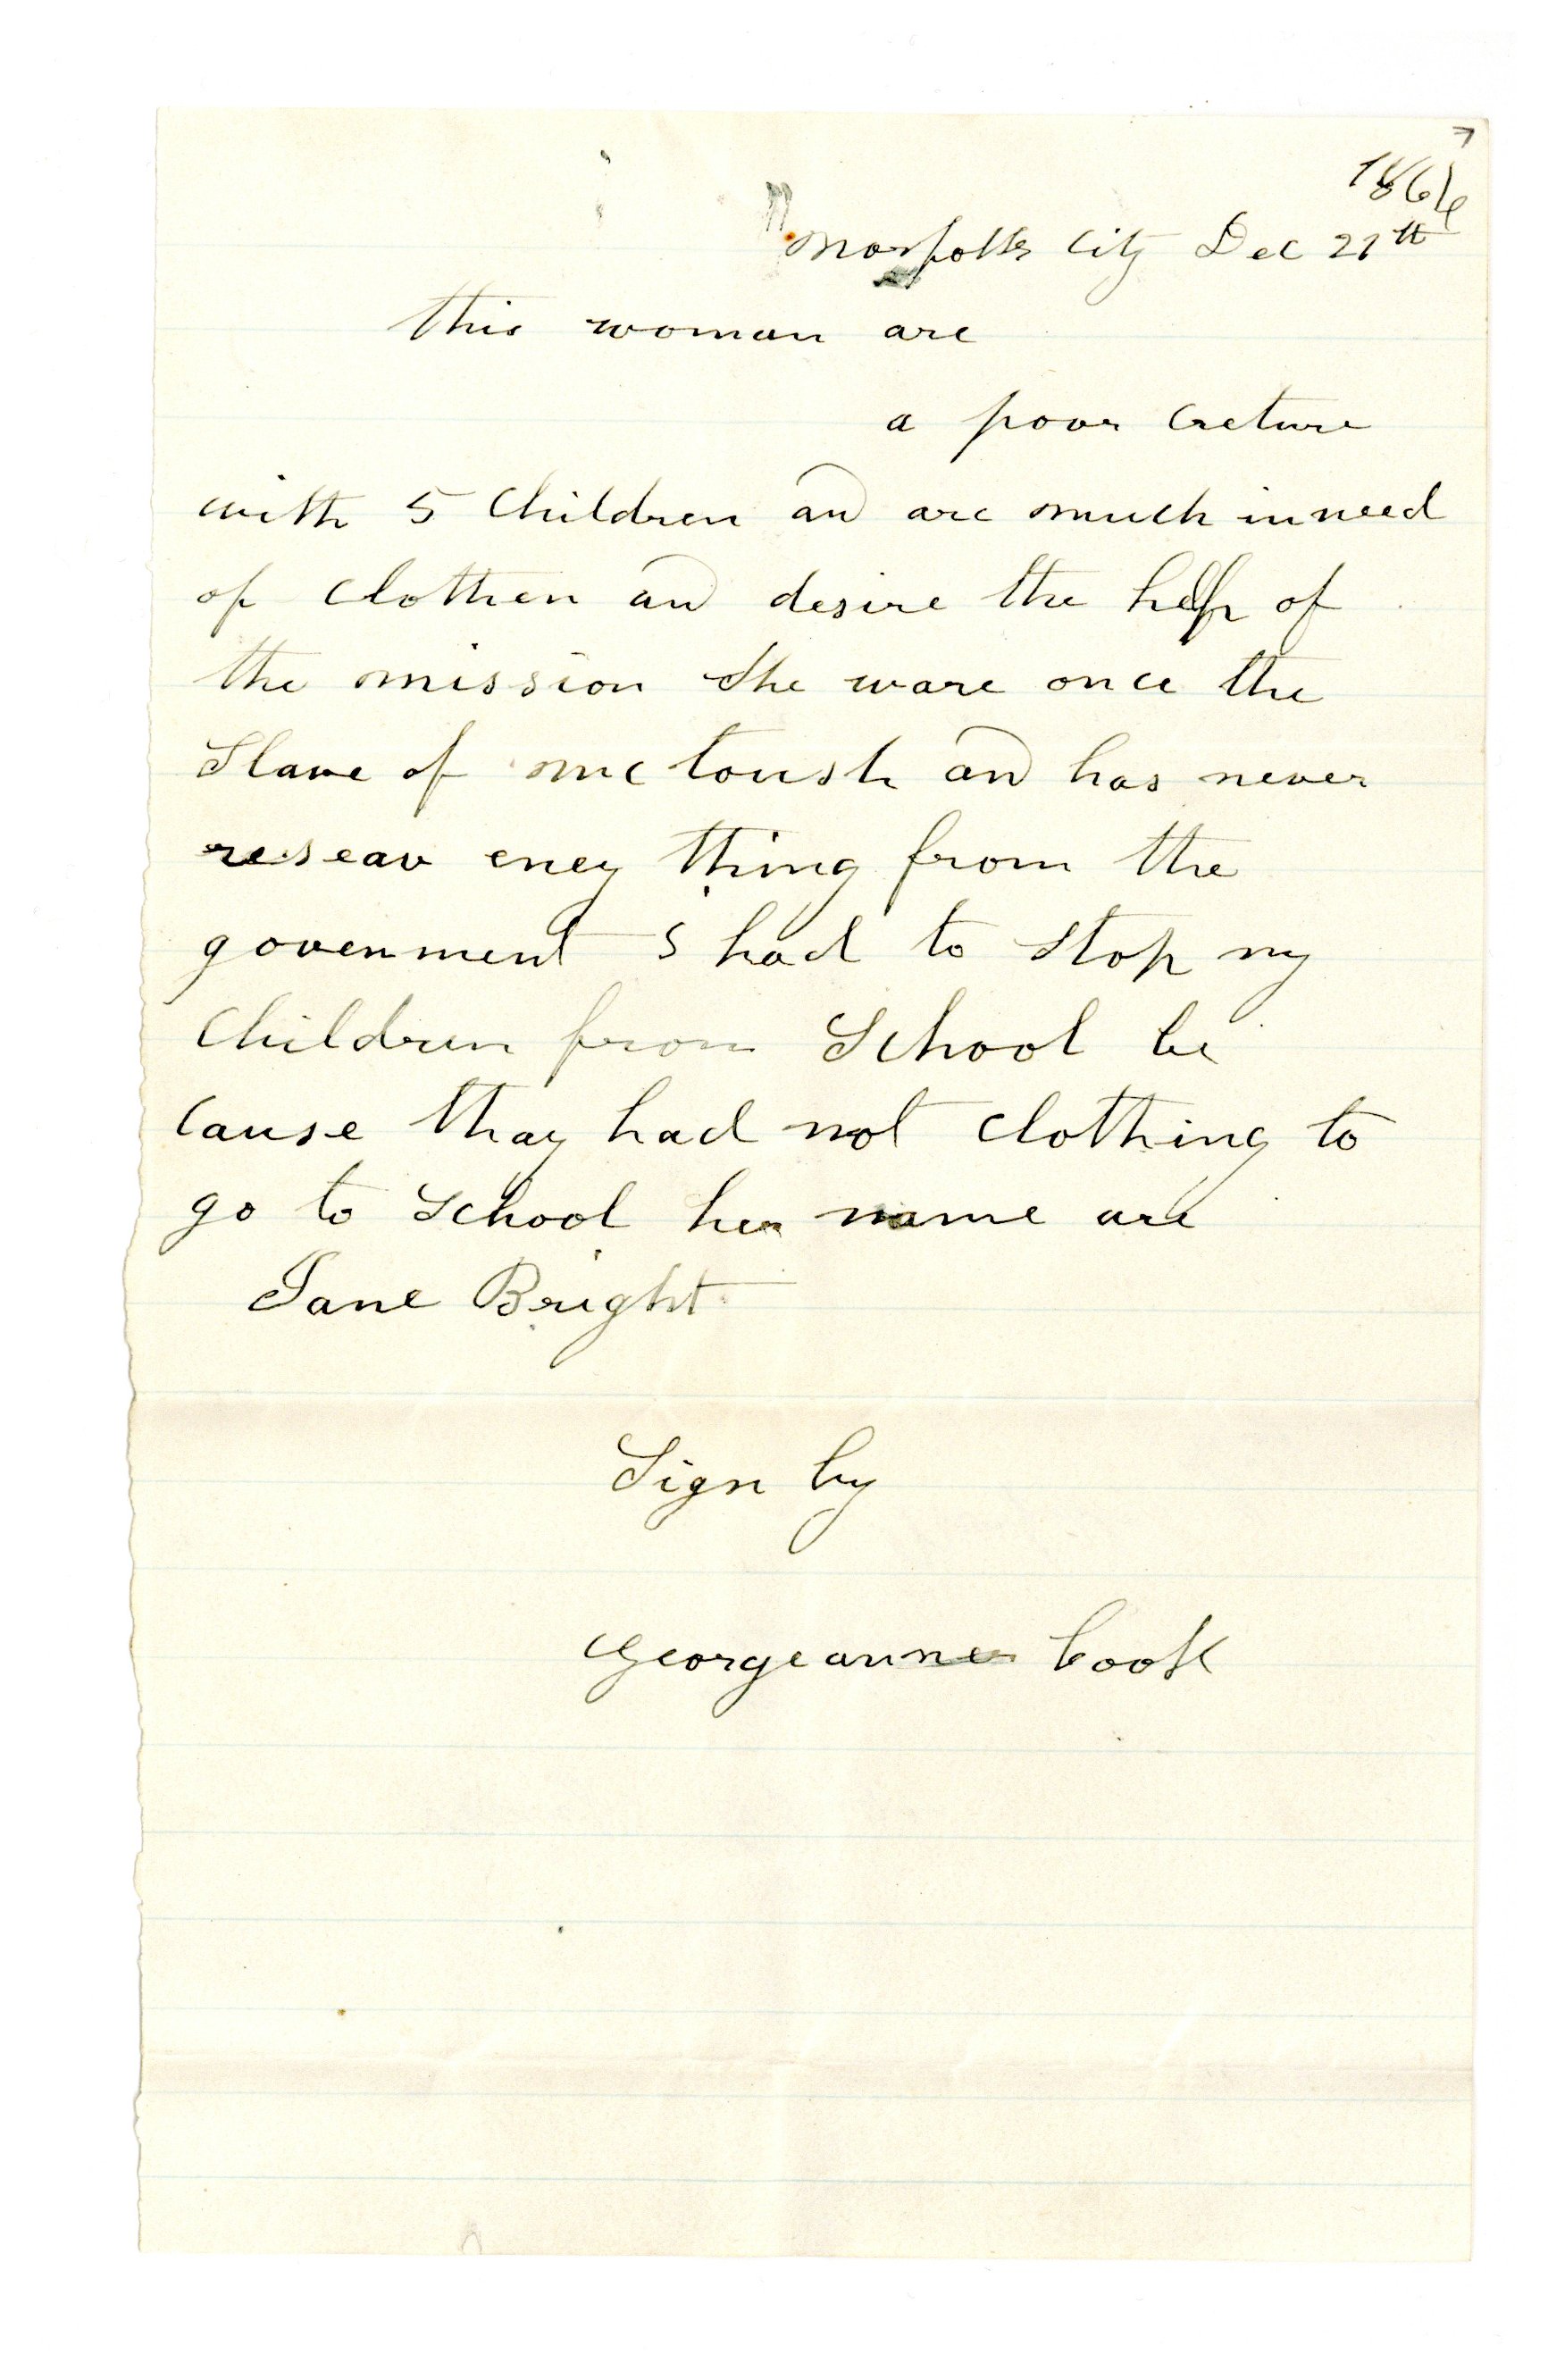 7
1866
Norfolk City Dec 21th
this woman are
a poor creture
with 5 Children an are much in need
of clothen an desire the help of
the mission She ware once the
Slave of mc toush an has never
reseav eney thing from the
govenment I had to Stop my
Children from School be
cause thay had not clothing to
go to School her name are
Jane Bright
Sign by
Georgeanne Cook